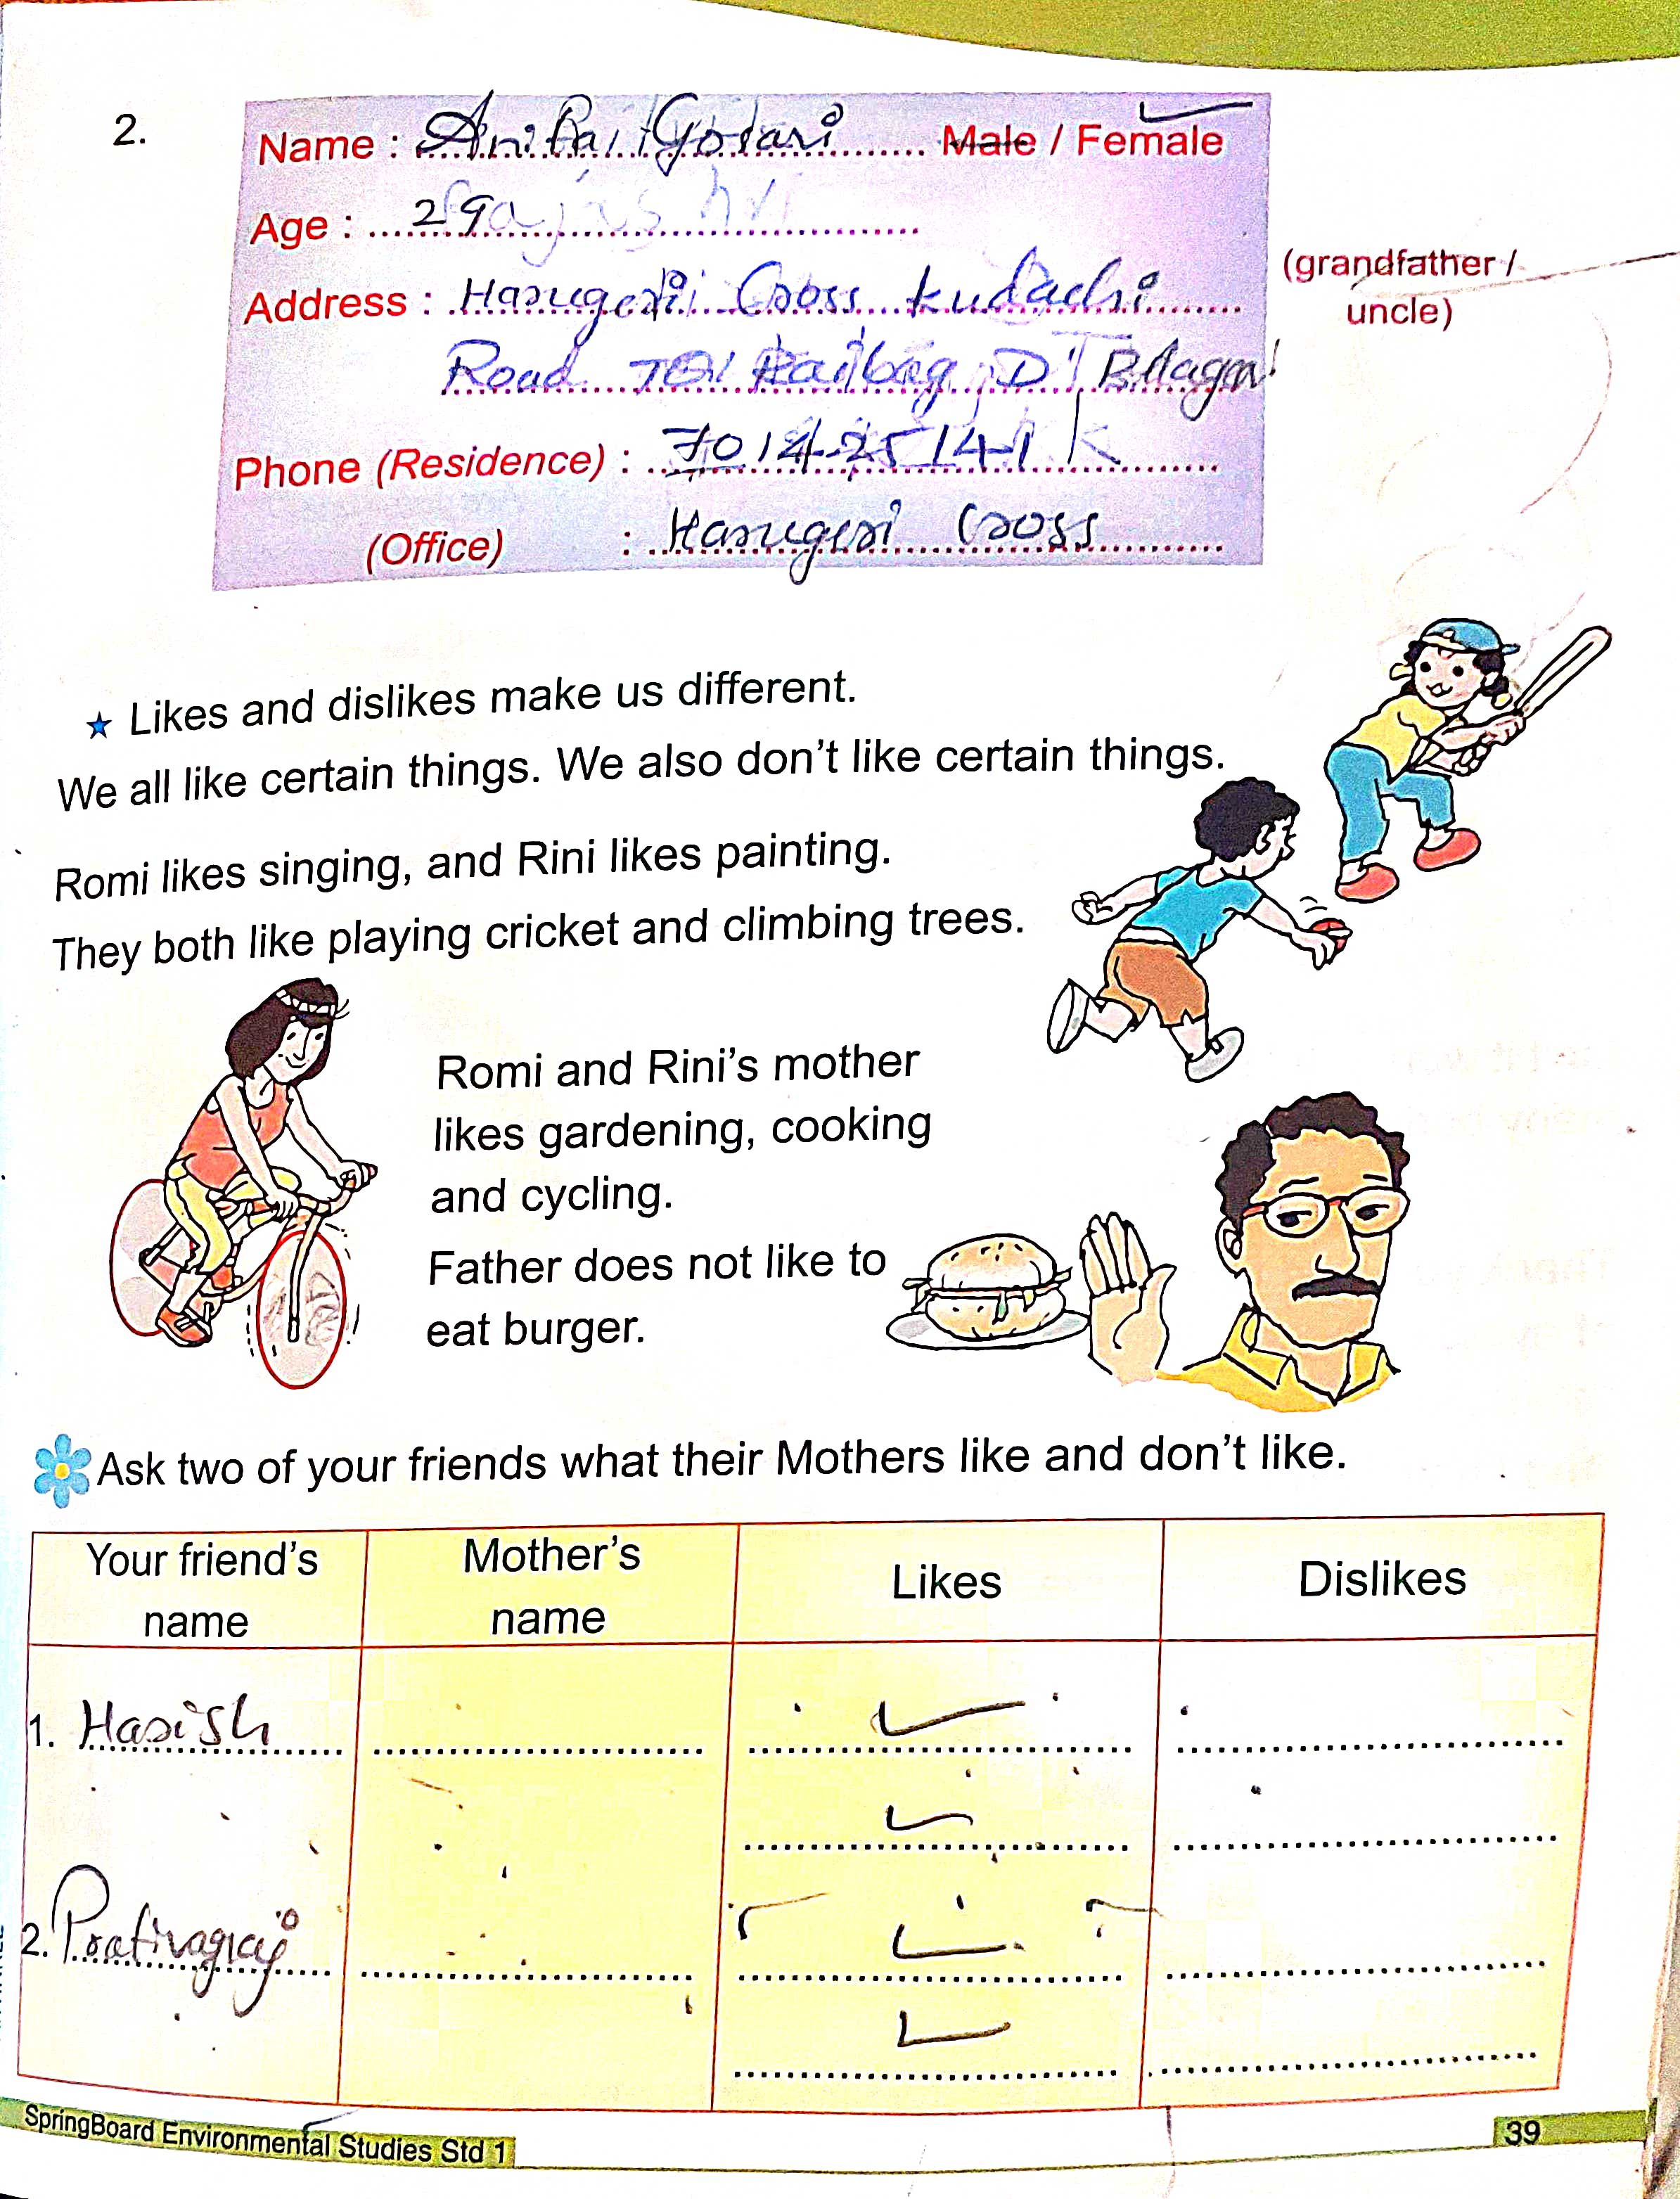 2.
Name : Male / Female
Age : 29
Address : Harugeri Cross kudachi
Road Raibag
Phone (Residence) :
(Office) : Harugeri Cross
(grandfather /
uncle)
★ Likes and dislikes make us different.
We all like certain things. We also don't like certain things.
Romi likes singing, and Rini likes painting.
They both like playing cricket and climbing trees.
Romi and Rini's mother
likes gardening, cooking
and cycling.
Father does not like to
eat burger.
Ask two of your friends what their Mothers like and don't like.
Your friend's name Mother's name Likes Dislikes
1. Harish
2.
SpringBoard Environmental Studies Std 1 39